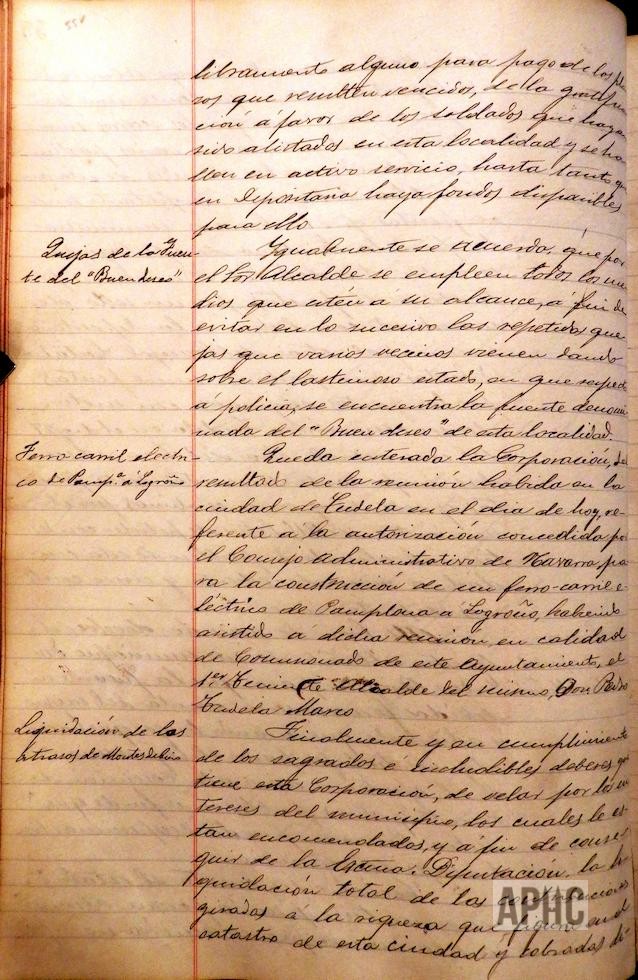 libramiento alguno para pago de los pla
zos que resulten vencidos, de la gratifica
ción á favor de los soldados que hayan
sido alistados en esta localidad y se ha
llen en activo servicio, hasta tanto que
en Depositaria haya fondos disponibles
para ello.
Quejas de la Fuen-
te del "Buen deseo"
Ygualmente se acuerda, que por
el Sor Alcalde se empleen todos los me
dios que estén á su alcance, a fin de
evitar en lo sucesivo las repetidas que
jas que varios vecinos vienen dando
sobre el lastimoso estado, en que respecto
á policia, se encuentra la fuente denomi
nada del "Buen deseo" de esta localidad.
Ferro carril electri-
co de Pampª á Logroño
Queda enterada la Corporación, del
resultado de la reunión habida en la
ciudad de Tudela en el dia de hoy, re-
ferente a la autorización concedida por
el Consejo administrativo de Navarra, pa
ra la construcción de un ferro-carril e-
léctrico de Pamplona a Logroño, habiendo
asistido a dicha reunión, en calidad
de Comisionado de este Ayuntamiento, el
1er Teniente Alcalde del mismo, Don Pedro
Tudela Marco
Liquidación de los
atrasos de Montes
Finalmente y en cumplimiento
de los sagrados é includibles deberes que
tiene esta Corporación, de velar por los in
tereses del municipio, los cuales le es
tan encomendados, y á fin de conse
guir de la Excma. Diputación, la li
quidación total de las contribuciones
giradas á la riqueza que figura en el
catastro de esta ciudad y cobradas di-
APHC